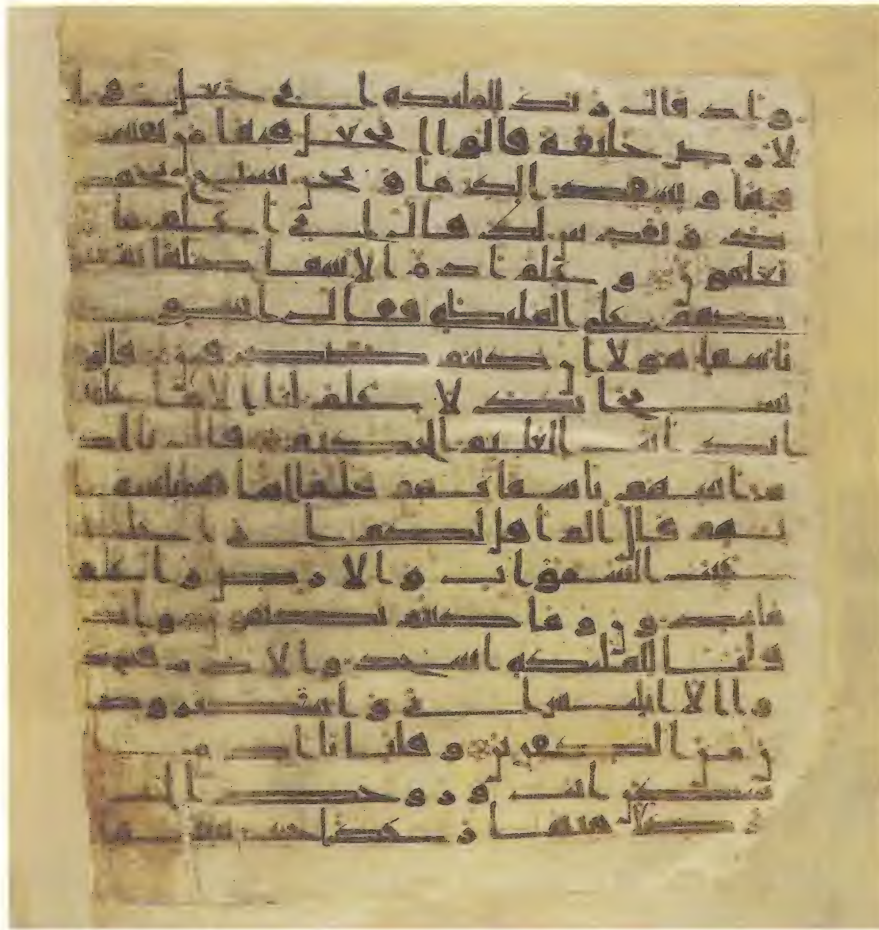 واذ قال ربك للمليكه اني جعل في ا
لارض خليفة قالوا اتجعل فيها من يفسد
فيها و يسفك الدما و نحن نسبح بحمد
ك و نقدس لك قال اني اعلم ما لا
تعلمون و علم ادم الاسما كلها ثم عر
ضهم على المليكه فقال انبوني
باسما هولا ان كنتم صدقين قالوا
سبحنك لا علم لنا الا ما علمتنا
انك انت العليم الحكيم قال يااد
م انبيهم باسمايهم فلما انباهم باسما
يهم قال الم اقل لكم اني اعلم
غيب السموات والارض واعلم
ما تبدون وما كنتم تكتمون واذ
قلنا للمليكه اسجدوا لادم فسجد
وا الا ابليس ابى واستكبر وكا
ن من الكفرين وقلنا ياادم ا
سكن انت وزوجك الجنـ
ـة وكلا منها رغدا حيث شيتما